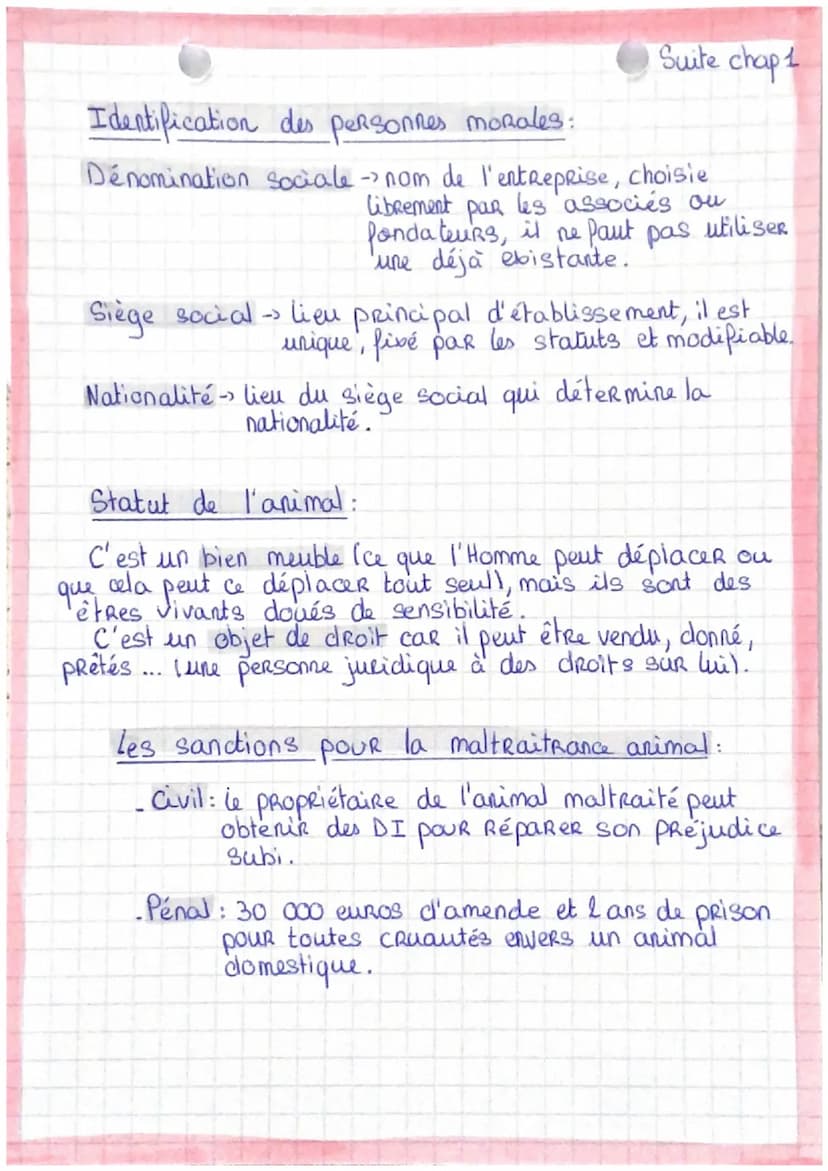 Suite chap 1
Identification des personnes morales :
Dénomination sociale -> nom de l'entreprise, choisie
librement par les associés ou
fondateurs, il ne faut pas utiliser
une déjà existante.
Siège social -> lieu principal d'établissement, il est
unique, fixé par les statuts et modifiable.
Nationalité -> lieu du siège social qui détermine la
nationalité.
Statut de l'animal :
C'est un bien meuble (ce que l'Homme peut déplacer ou
que cela peut ce déplacer tout seul), mais ils sont des
êtres vivants doués de sensibilité.
C'est un objet de droit car il peut être vendu, donné,
prêtés ... (une personne juridique à des droits sur lui).
Les sanctions pour la maltraitrance animal :
- Civil : le propriétaire de l'animal maltraité peut
obtenir des DI pour réparer son préjudice
subi.
- Pénal : 30 000 euros d'amende et 2 ans de prison
pour toutes cruautés envers un animal
domestique.